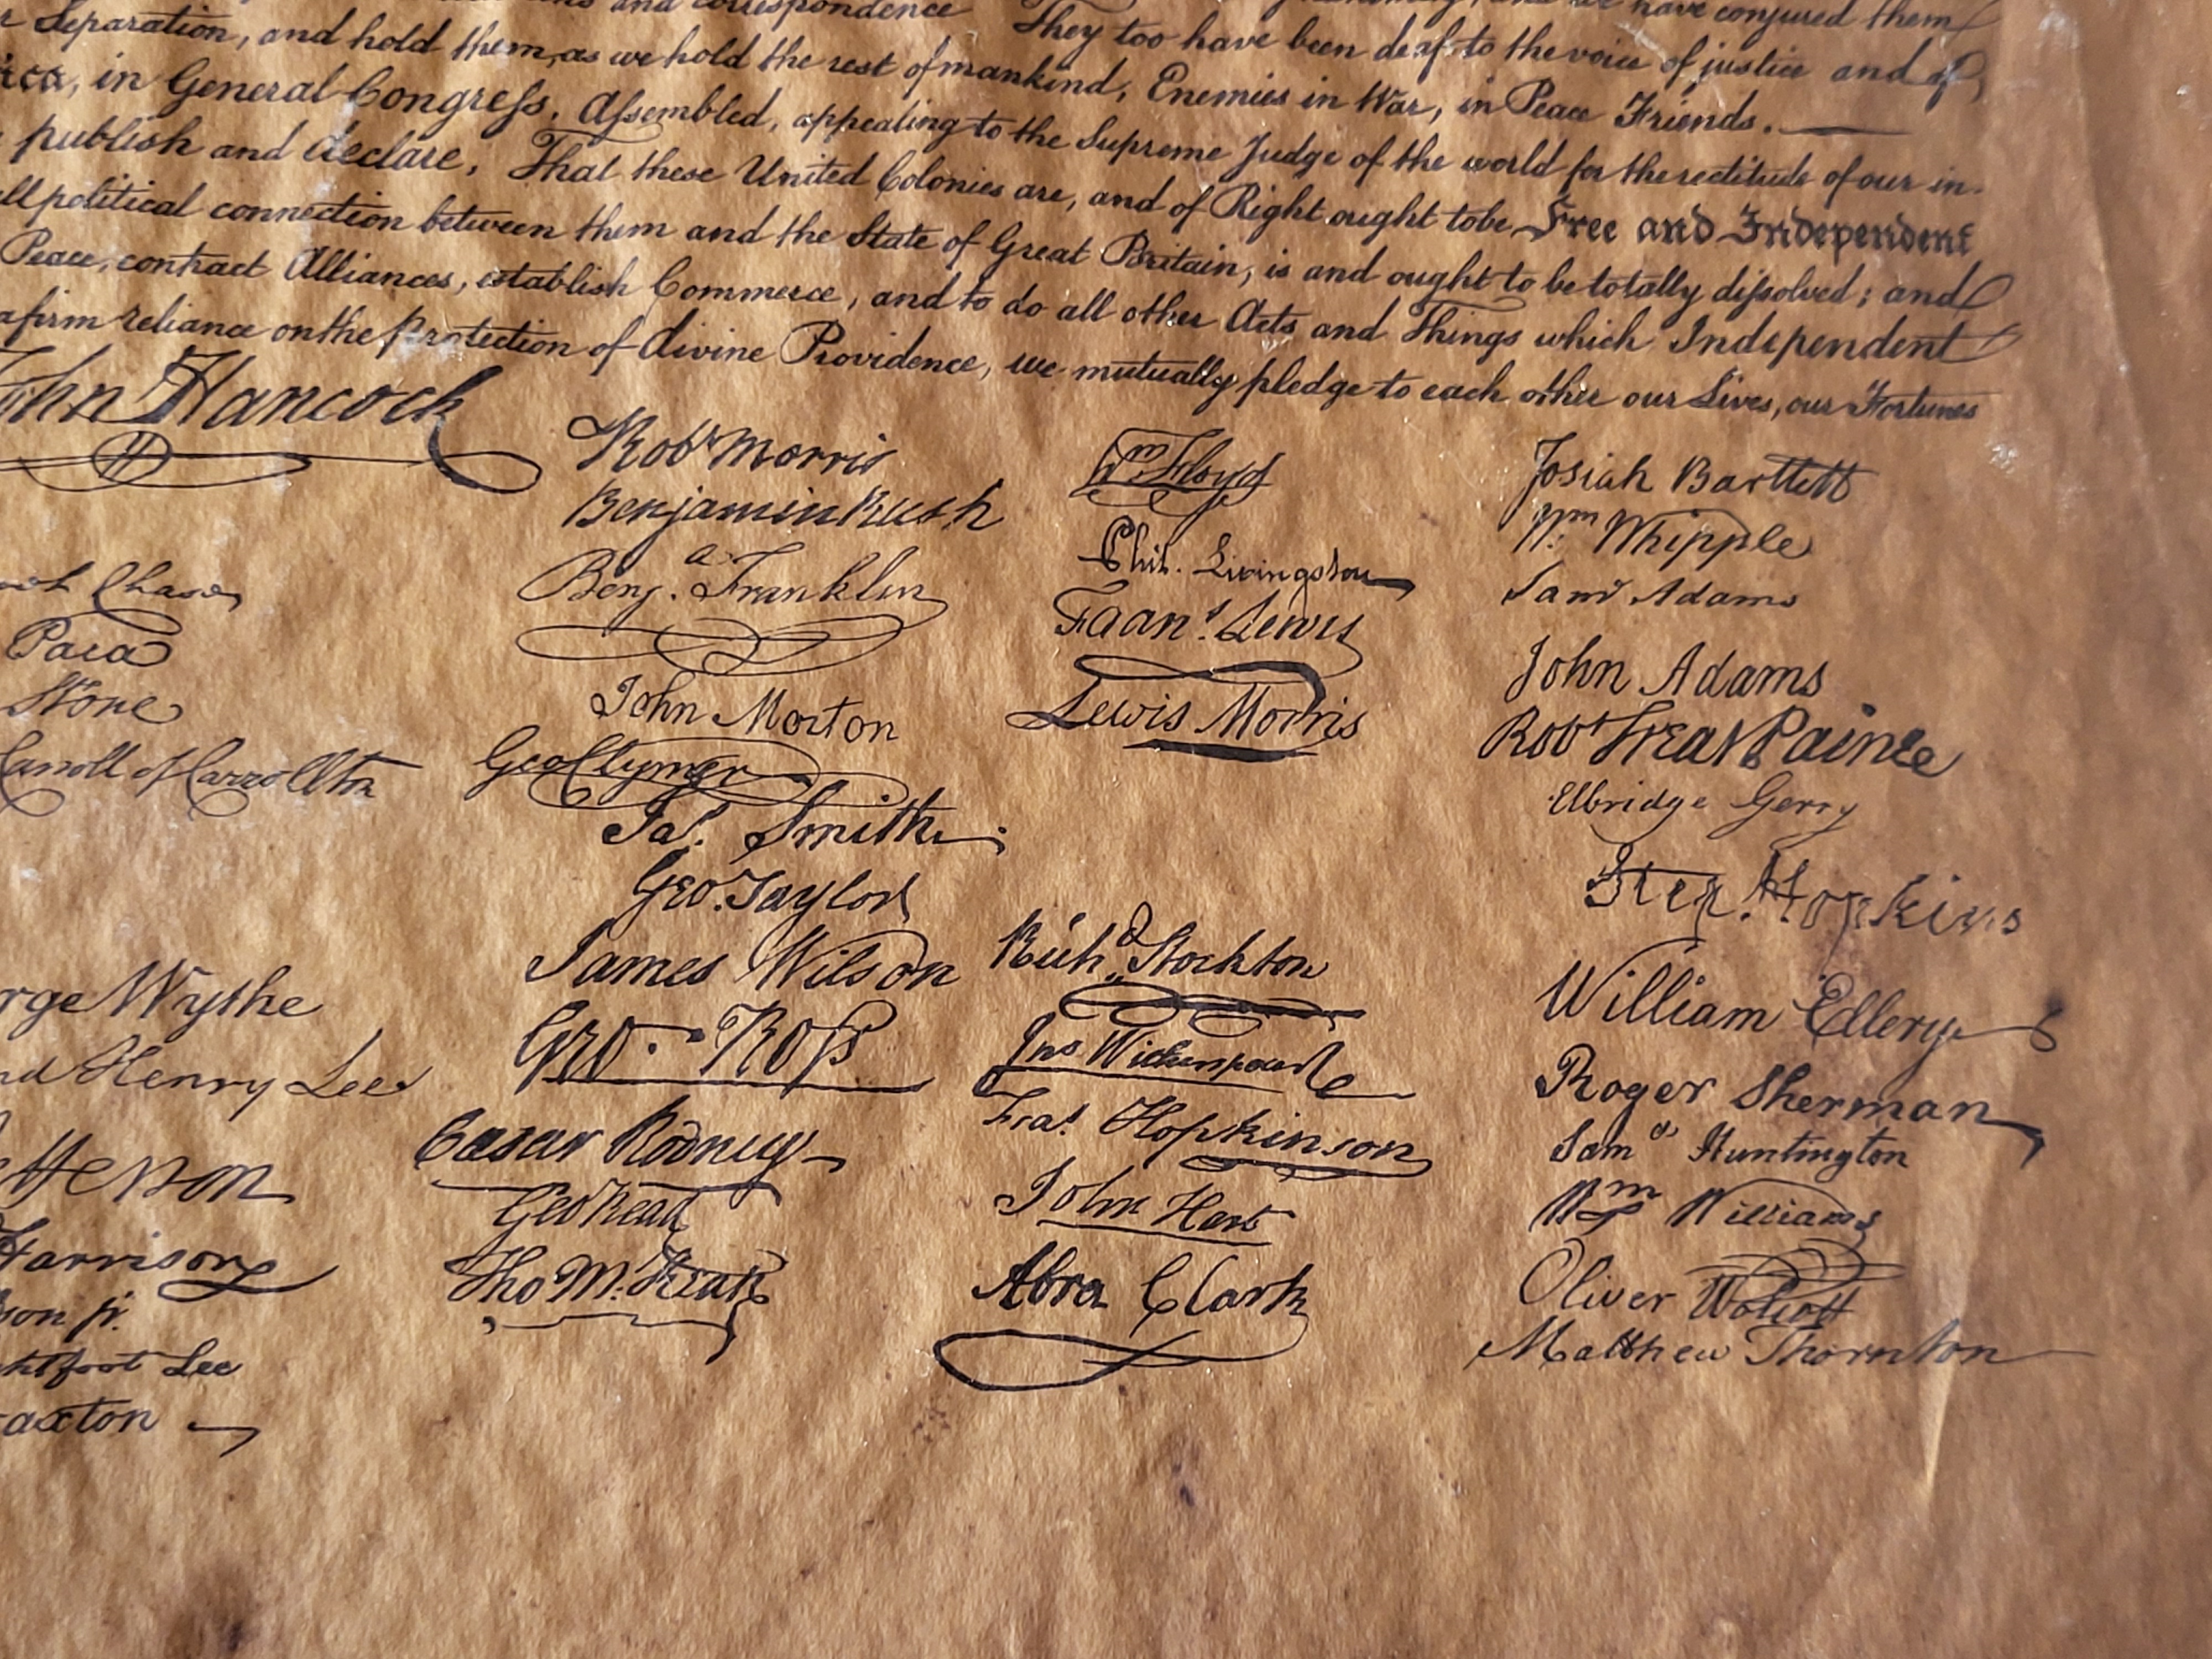 and correspondence have conjured them
Separation, and hold them, as we hold the rest of mankind, Enemies in War, in Peace Friends. They too have been deaf to the voice of justice and of
in General Congress, Assembled, appealing to the Supreme Judge of the world for the rectitude of our in-
publish and declare, That these United Colonies are, and of Right ought to be Free and Independent
political connection between them and the State of Great Britain, is and ought to be totally dissolved; and
Peace, contract Alliances, establish Commerce, and to do all other Acts and Things which Independent
a firm reliance on the Protection of divine Providence, we mutually pledge to each other our Lives, our Fortunes
John Hancock
Chase
Paca
Stone
Carroll of Carrollton
Wythe
Henry Lee
Harrison
son jr.
Lee
Robt Morris
Benjamin Rush
Benja. Franklin
John Morton
Geo Clymer
Jas. Smith
Geo. Taylor
James Wilson
Geo. Ross
Caesar Rodney
Geo Read
Tho M:Kean
Wm Floyd
Phil. Livingston
Faans. Lewis
Lewis Morris
Richd. Stockton
Jno Witherspoon
Fras. Hopkinson
John Hart
Abra Clark
Josiah Bartlett
Wm: Whipple
Saml Adams
John Adams
Robt Treat Paine
Elbridge Gerry
Step. Hopkins
William Ellery
Roger Sherman
Samel Huntington
Wm Williams
Oliver Wolcott
Matthew Thornton